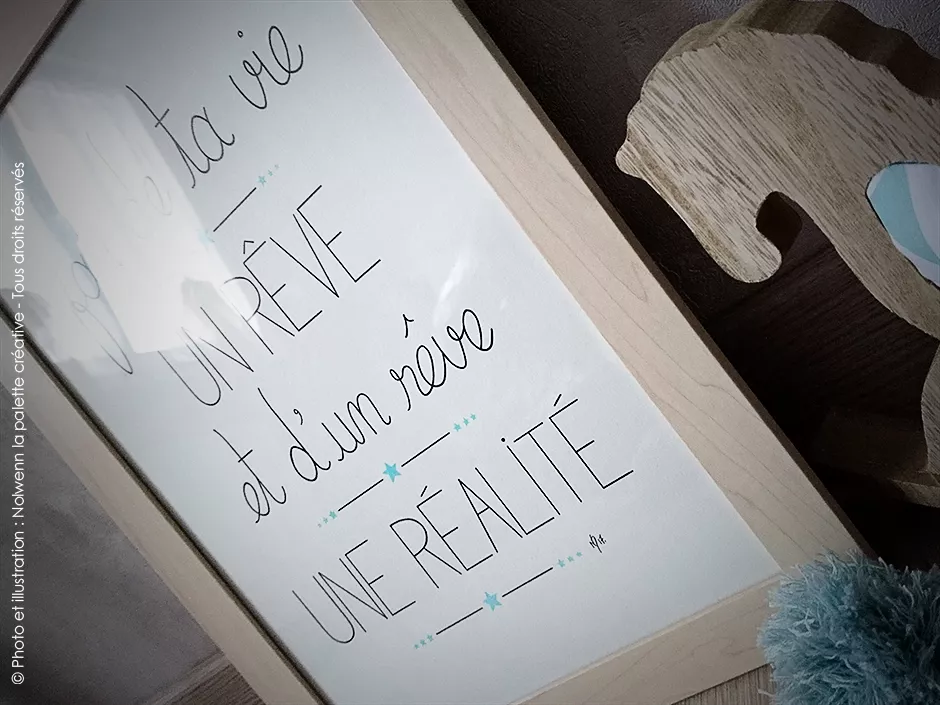 ta vie
UN RÊVE
et d'un rêve
UNE RÉALITÉ
© Photo et illustration : Nolwenn la palette créative - Tous droits réservés